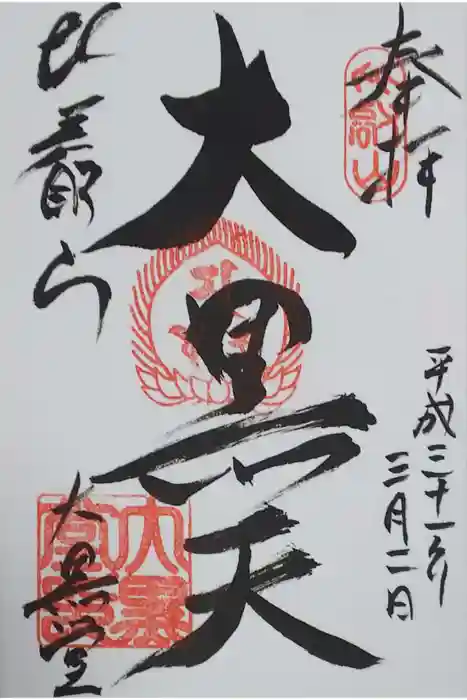 奉拝
平成三十一年
三月二日
大黒天
比叡山
大黒堂
大黒堂